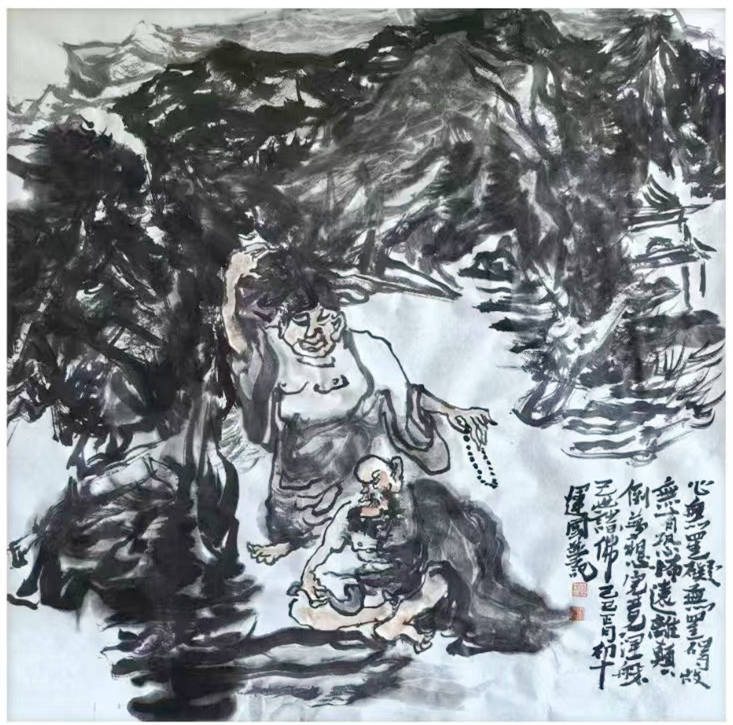 心無罣礙無罣碍故
無有恐怖遠離顛
倒夢想究竟涅槃
三世諸佛 正月初十
國